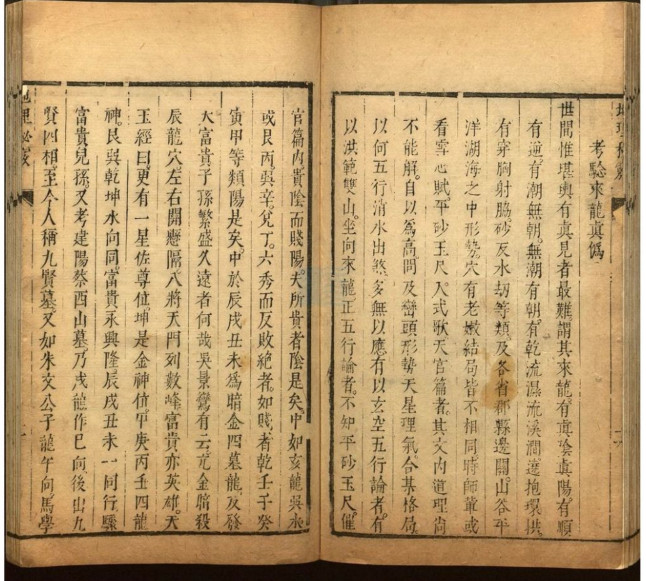 考驗來龍真僞
世間惟堪輿有真見者最難謂其來龍有真陰真陽有順
有逆有潮無朝無潮有朝有乾流濕流溪澗遶抱環拱
有穿胸射脇砂反水刼等類及各省郡縣邊關山谷平
洋湖海之中形勢穴有老嫩結局皆不相同時師輩或
看雪心賦平砂玉尺入式歌天官篇者其文内道理尚
不能解自以爲高問及巒頭形勢天星理氣合基格局
以何五行消水出煞多無以應有以玄空五行論者有
以洪範雙山坐向來龍正五行論者不知平砂玉尺催
官篇内貴陰而賤陽夫所貴者陰是矣中如亥龍巽水
或艮丙巽辛兌丁六秀而反敗絶者如賤者乾壬子癸
寅甲等類陽是矣中於辰戌丑未爲暗金四墓龍反發
大富貴子孫繁盛久遠者何哉吳景鸞有云亢金暗殺
辰龍穴左右開懸隔八將天門列數峰富貴亦英雄天
玉經曰更有一星佐尊位坤是金神位甲庚丙壬四龍
神艮巽乾坤水向同富貴永興隆辰戌丑未一同行驟
富貴兒孫又考建陽蔡西山墓乃戌龍作巳向後出九
賢四相至今人稱九賢墓又如朱文公子龍午向馬學
地理必